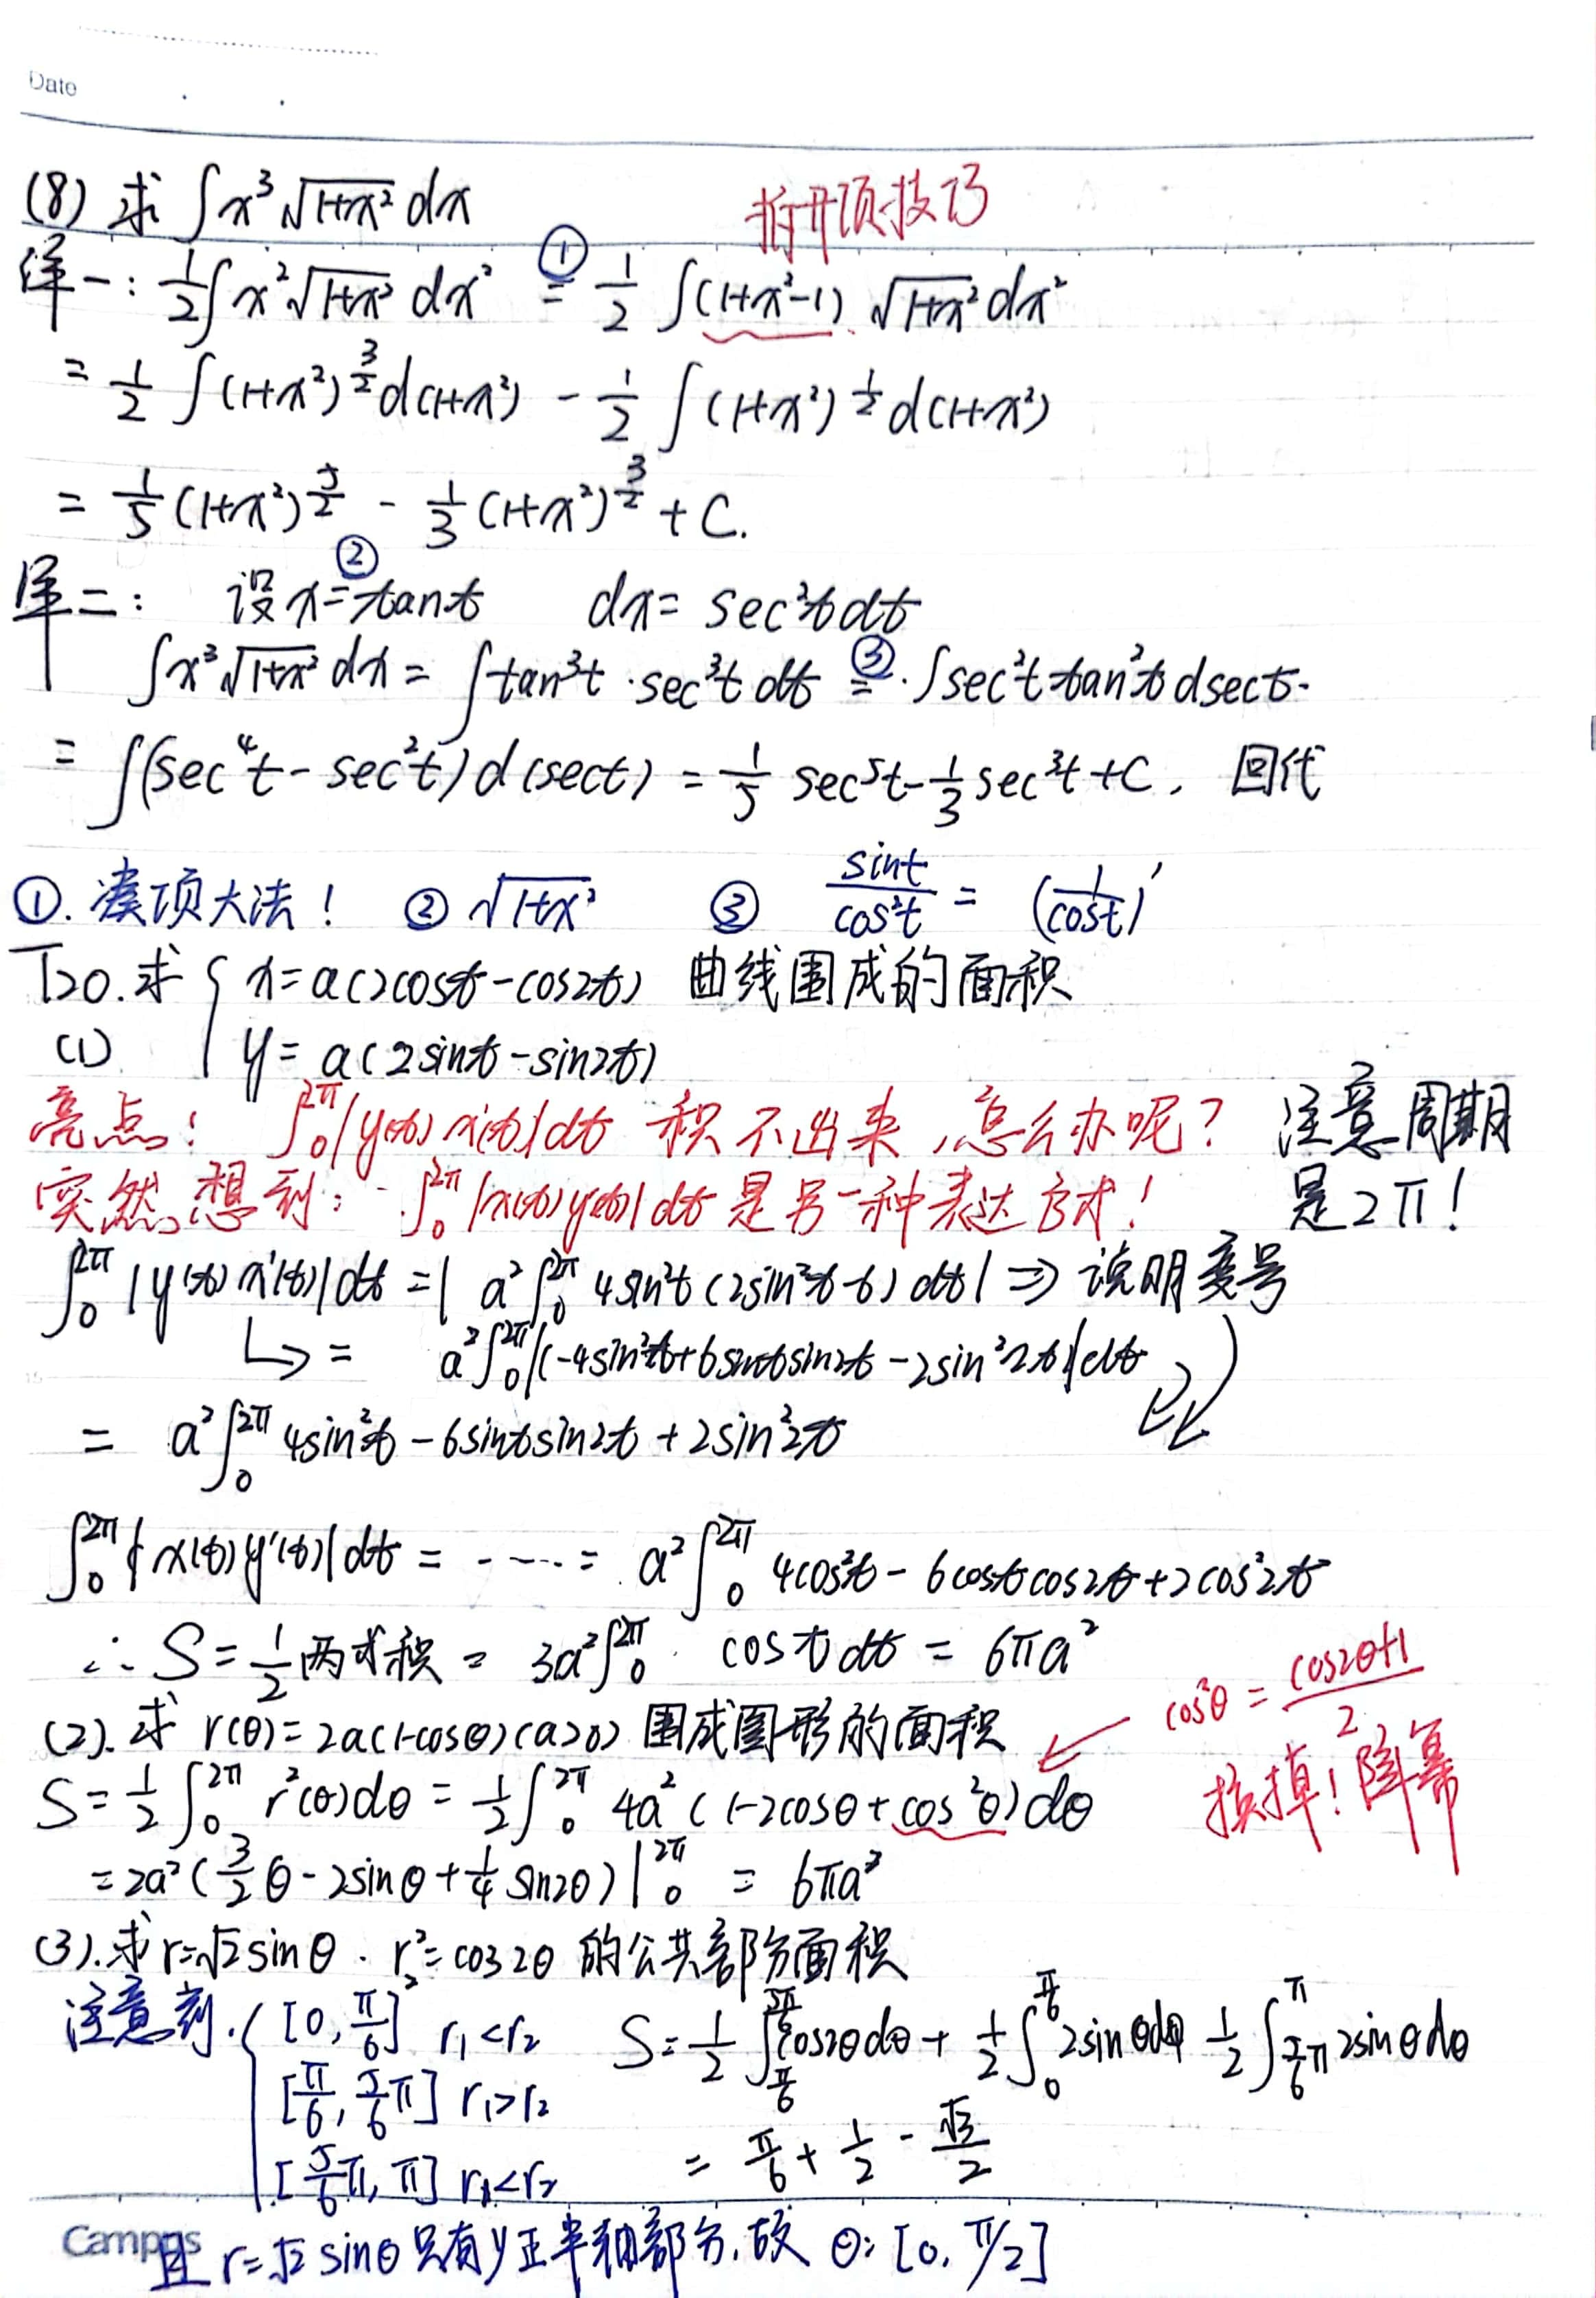 Date
(8) 求 ∫x³√(1+x²) dx 拆开项技巧
详一: 1/2∫x²√(1+x²) dx² ①= 1/2 ∫(1+x²-1) √(1+x²) dx²
= 1/2 ∫(1+x²)^(3/2) d(1+x²) - 1/2 ∫(1+x²)^(1/2) d(1+x²)
= 1/5 (1+x²)^(5/2) - 1/3 (1+x²)^(3/2) + C.
详二: 设x=②tant dx= sec²t dt
∫x³√(1+x²) dx = ∫tan³t·sec³t dt ③= ·∫sec²t tan²t dsect.
= ∫(sec⁴t - sec²t) d(sect) = 1/5 sec⁵t - 1/3 sec³t + C, 回代
①. 凑项大法! ② √(1+x²) ③ sint/cos²t = (1/cost)′
T20. 求 { x= a(2cost-cos2t) 曲线围成的面积
(1) y= a(2sint-sin2t)
亮点: ∫₀^2π |y(t) x′(t)|dt 积不出来,怎么办呢? 注意周期
突然想到: ∫₀^2π |x(t)y′(t)|dt 是另一种表达方式! 是2π!
∫₀^2π |y(t) x′(t)|dt = | a²∫₀^2π 4sin²t (2sin²t-6) dt | ⇒ 说明变号
↳ = a²∫₀^2π |(-4sin²t+6sintsin2t-2sin²2t)|dt
= a²∫₀^2π 4sin²t-6sintsin2t+2sin²2t
∫₀^2π |x(t)y′(t)|dt = ----= a²∫₀^2π 4cos²t-6costcos2t+2cos²2t
∴ S= 1/2 两式积 = 3a²∫₀^2π cost dt = 6πa²
(2). 求 r(θ)=2a(1-cosθ)(a>0) 围成图形的面积 ← cos²θ = (cos2θ+1)/2
S= 1/2 ∫₀^2π r²(θ)dθ = 1/2 ∫₀^2π 4a² (1-2cosθ+cos²θ)dθ 换掉! 降幂
=2a²(3/2 θ-2sinθ+1/4 sin2θ)|₀^2π = 6πa²
(3). 求 r=√2 sinθ · r²=cos2θ 的公共部分面积
注意到. { [0, π/6] r₁<r₂ S= 1/2 ∫cos2θdθ + 1/2 ∫₀^(π/6) 2sinθdθ 1/2 ∫_(5/6 π)^π 2sinθdθ
[π/6, 5/6 π] r₁>r₂
[5/6 π, π] r₁<r₂ = π/6 + 1/2 - √3/2
Campus
且 r=√2 sinθ 只有y正半轴部分, 故 θ: [0, π/2]